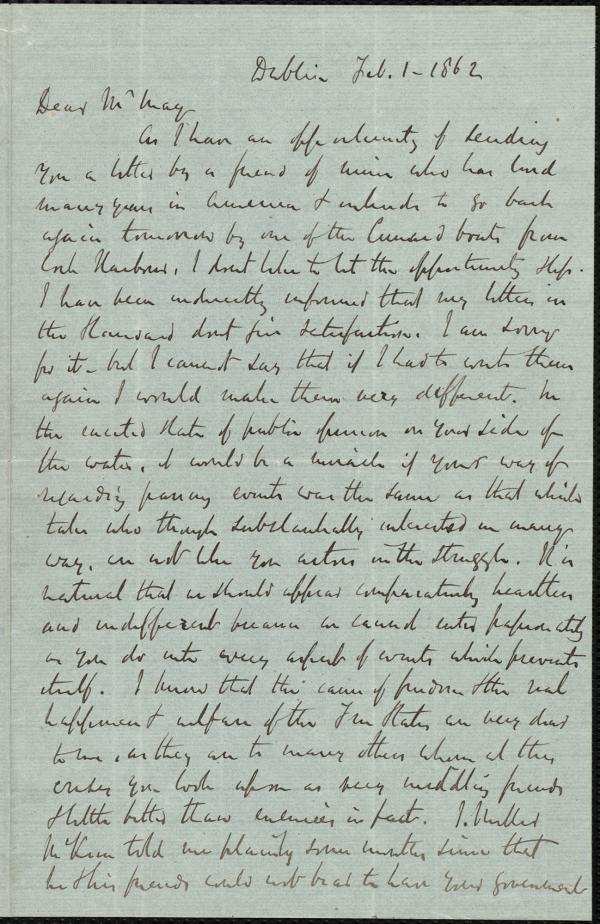 Dublin Feb. 1 - 1862
Dear Mr May
As I have an opportunity of sending
you a letter by a friend of mine who has lived
many years in America & intends to go back
again tomorrow by one of the Cunard boats from
Cork Harbour, I don't like to let the opportunity slip.
I have been indirectly informed that my letters in
the Standard dont give satisfaction. I am sorry
for it - but I cannot say that if I had to write them
again I would make them very different. In
the excited state of public opinion on your side of
the water, it would be a miracle if your way of
regarding passing events was the same as that which
takes who though substantially interested in many
way, are not like you actors in the struggle. It is
natural that we should appear comparatively heartless
and indifferent because we cannot enter passionately
as you do into every aspect of events which presents
itself. I know that the cause of freedom & the real
happiness & welfare of the Free States are very dear
to me, as they are to many others whom at this
crisis you look upon as very middling friends
& little better than enemies in fact. J. Miller
McKim told me plainly some months since that
he & his friends could not bear to have your government